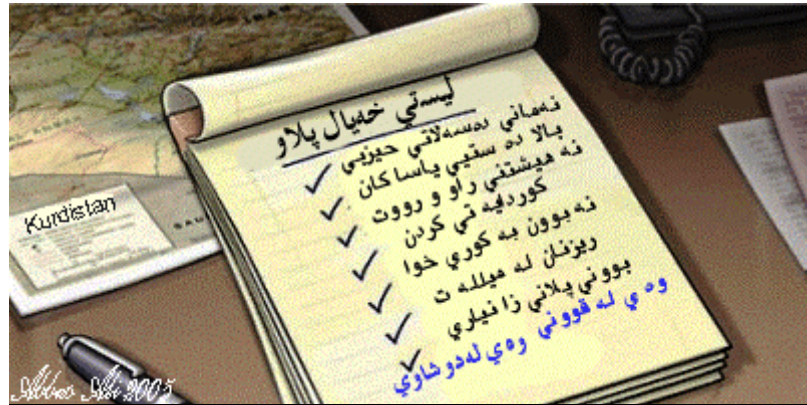 ليستي خەيال پلاو
نەماني دەسەلاتي حيزبي
بالا دە ستيي ياسا كان
نە هيشتني راو و رووت
كوردايە تي كردن
نە بوون بە كوري خوا
ريزنان لە ميللە ت
بووني پلاني زا نياري
وە ي لە قووني وەي لەدو شاوي
Kurdistan
2005